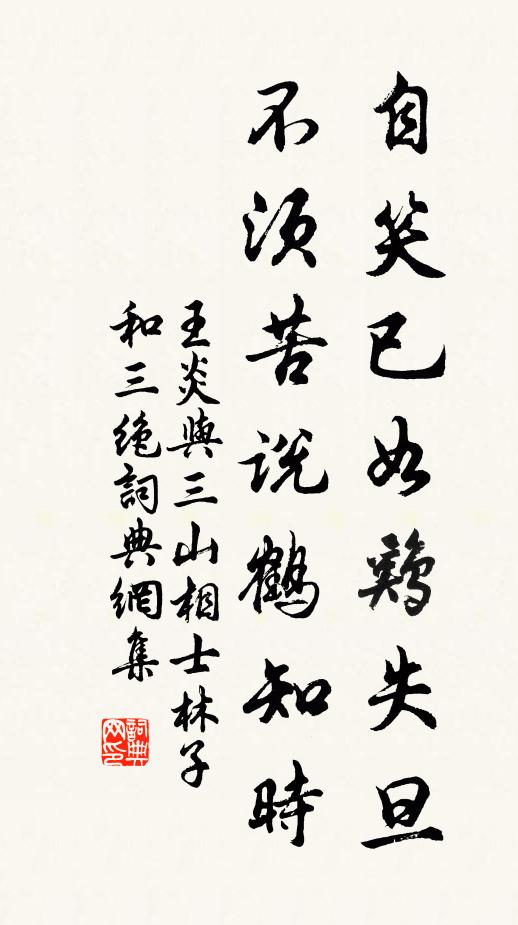 自笑已如鷄失旦
不須苦說鶴知時
王炎與三山相士林子
和三絶詞典網集
詞典
网印